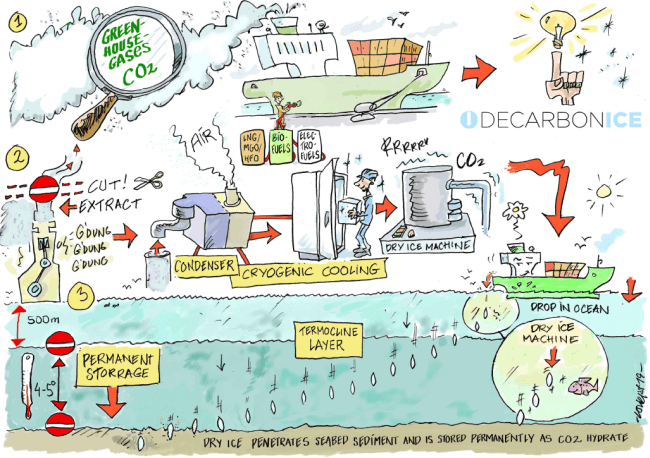 1
GREEN-
HOUSE-
GASES
CO2
DECARBONICE
LNG/
MGO/
HFO
BIO-
FUELS
ELEC-
TRO-
FUELS
2
AIR
RRRRRR
CO2
CUT!
EXTRACT
G'DUNG
G'DUNG
G'DUNG
CONDENSER
CRYOGENIC COOLING
DRY ICE MACHINE
3
500m
DROP IN OCEAN
DRY ICE
MACHINE
TERMOCLINE
LAYER
PERMANENT
STORRAGE
4-5°
DRY ICE PENETRATES SEABED SEDIMENT AND IS STORED PERMANENTLY AS CO2 HYDRATE